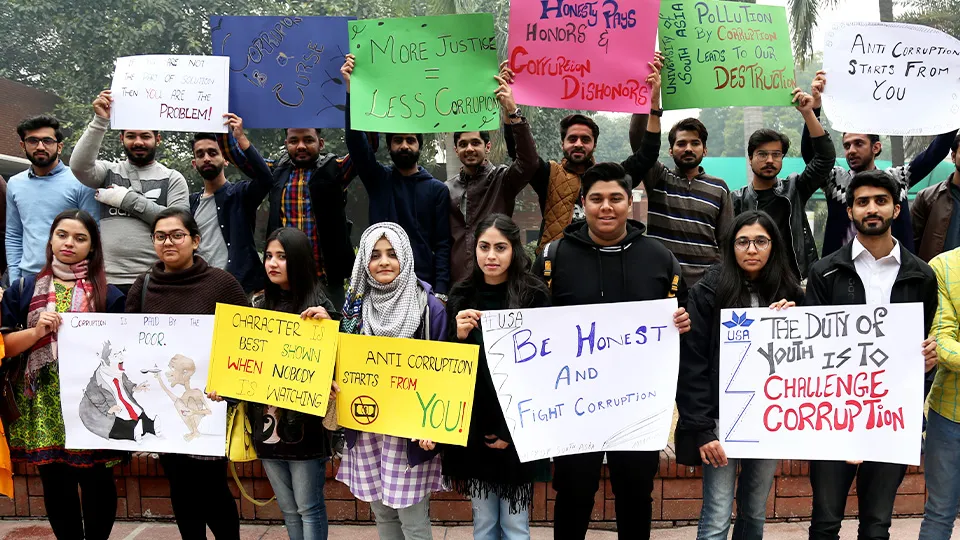 ARE NOT
THE PART OF SOLUTION
THEN YOU ARE THE
PROBLEM!
CORRUPTION
IS A CURSE
MORE JUSTICE
=
LESS CORRUPTION
HONESTY PAYS
HONORS &
CORRUPTION
DISHONORS
UNIVERSITY OF
SOUTH ASIA
POLLUTION
BY CORRUPTION
LEADS TO OUR
DESTRUCTION
ANTI CORRUPTION
STARTS FROM
YOU
CORRUPTION IS PAID BY THE
POOR.
CHARACTER IS
BEST SHOWN
WHEN NOBODY
IS WATCHING
ANTI CORRUPTION
STARTS FROM
YOU!
USA
BE HONEST
AND
FIGHT CORRUPTION
USA
THE DUTY OF
YOUTH IS TO
CHALLENGE
CORRUPTION